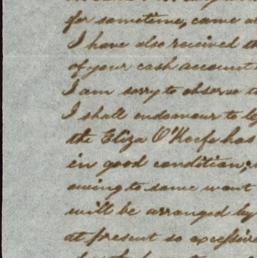 for sometime, came
I have also received th
of your cash account
I am sorry to observe t
I shall endeavour to le
the Eliza O'Keefe has
in good condition,
owing to some want
will be arranged by
at present so excessive